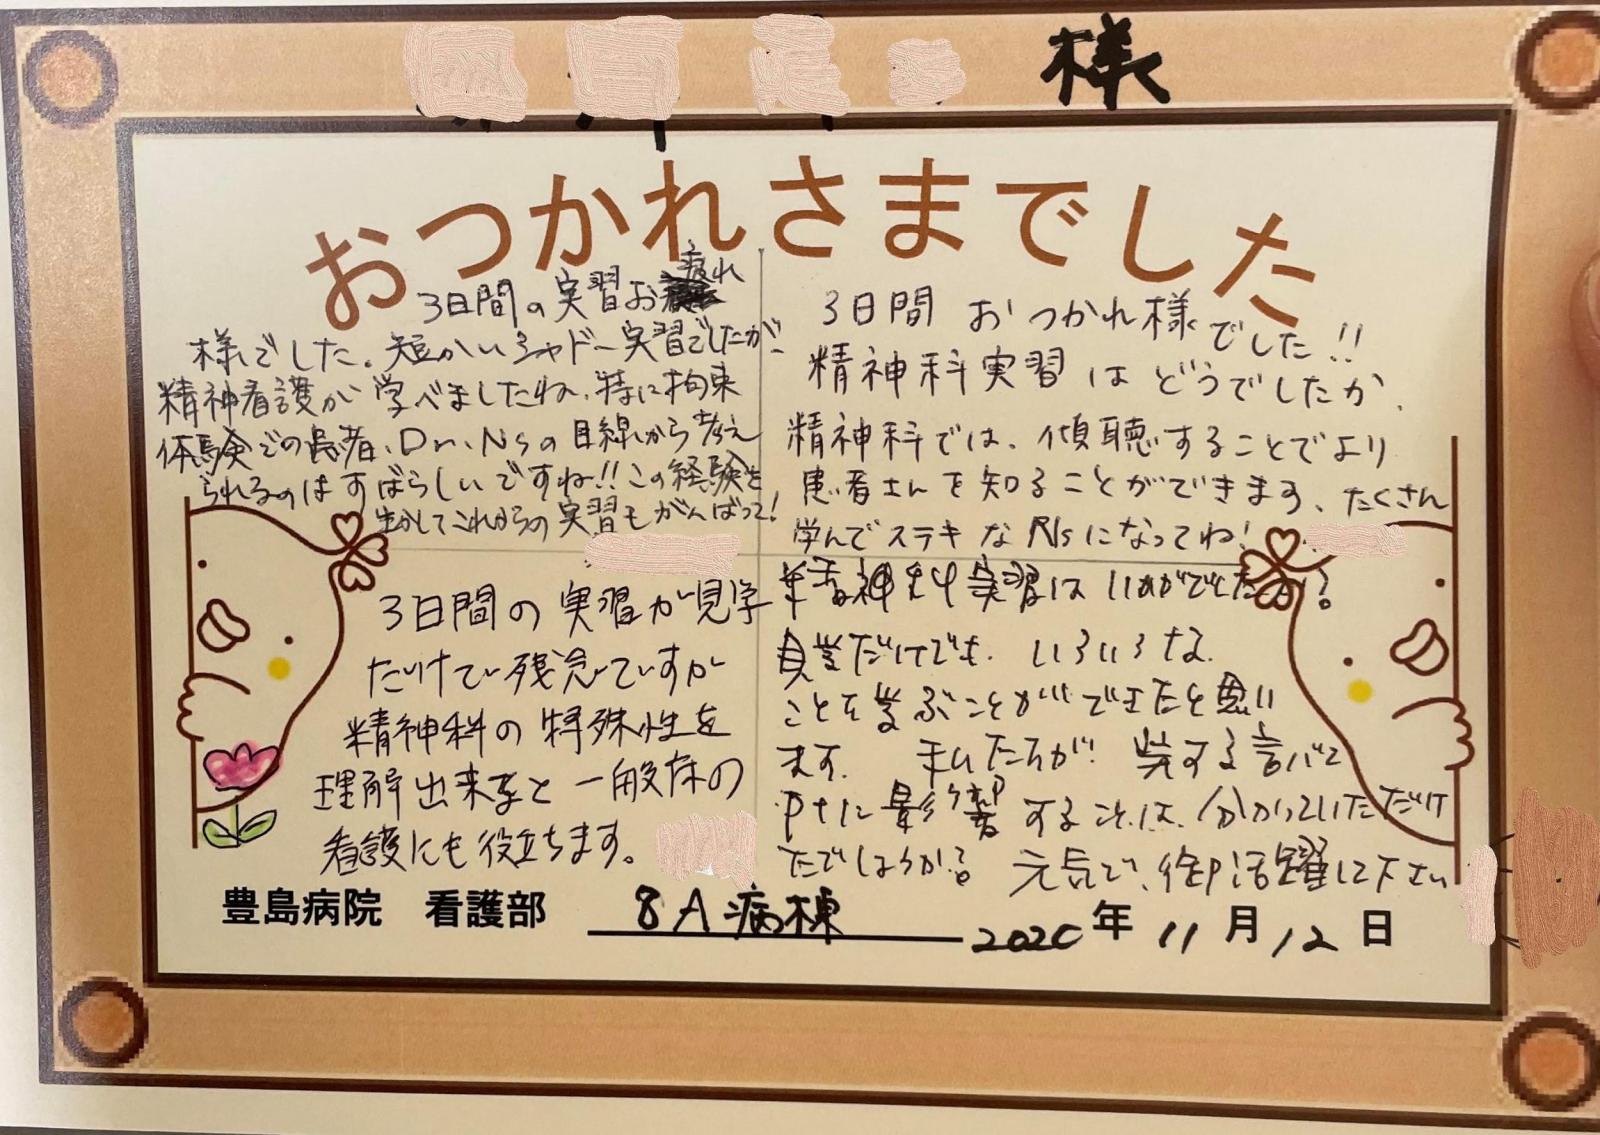 様
おつかれさまでした
3日間の実習お疲れ
様でした。短かいシャドー実習でしたが、
精神看護が学べましたね、特に拘束
体験での患者、Dr、Nsの目線から考え
られるのはすばらしいですね!!この経験を
生かしてこれからの実習もがんばって!
3日間 おつかれ様でした!!
精神科実習はどうでしたか、
精神科では、傾聴することでより
患者さんを知ることができます、たくさん
学んでステキなNsになってね!
3日間の実習が見学
だけで残念ですが
精神科の特殊性を
理解出来ると一般床の
看護にも役立ちます。
精神科実習はいかがでしたか?
見学だけでも、いろいろな
ことを学ぶことができたと思い
ます. 私たちが 発する言バで
Ptに影響することは、分かっていただけ
たでしょうか? 元気で、活躍して下さい
豊島病院 看護部 8A病棟 2020年11月12日